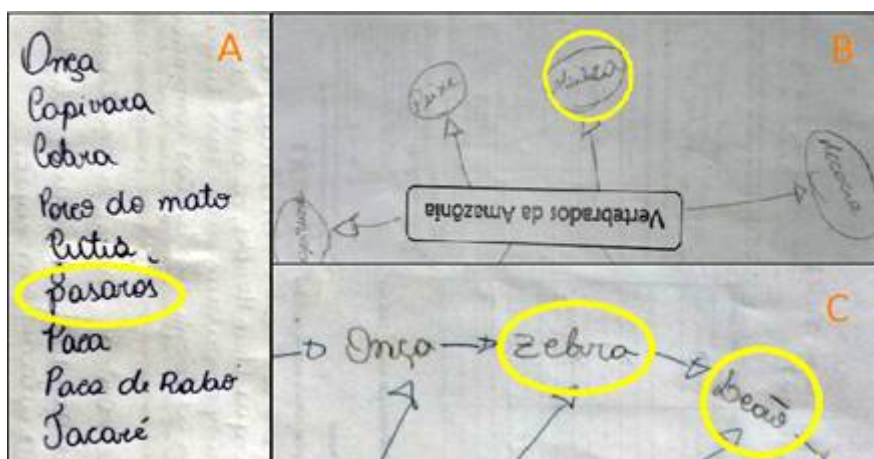 A
Onça
Capivara
Cobra
Porco do mato
Cutia
Pasaros
Paca
Paca de Rabo
Jacaré
B
Peixe
Vertebrados da Amazônia
C
Onça
Zebra
Leão